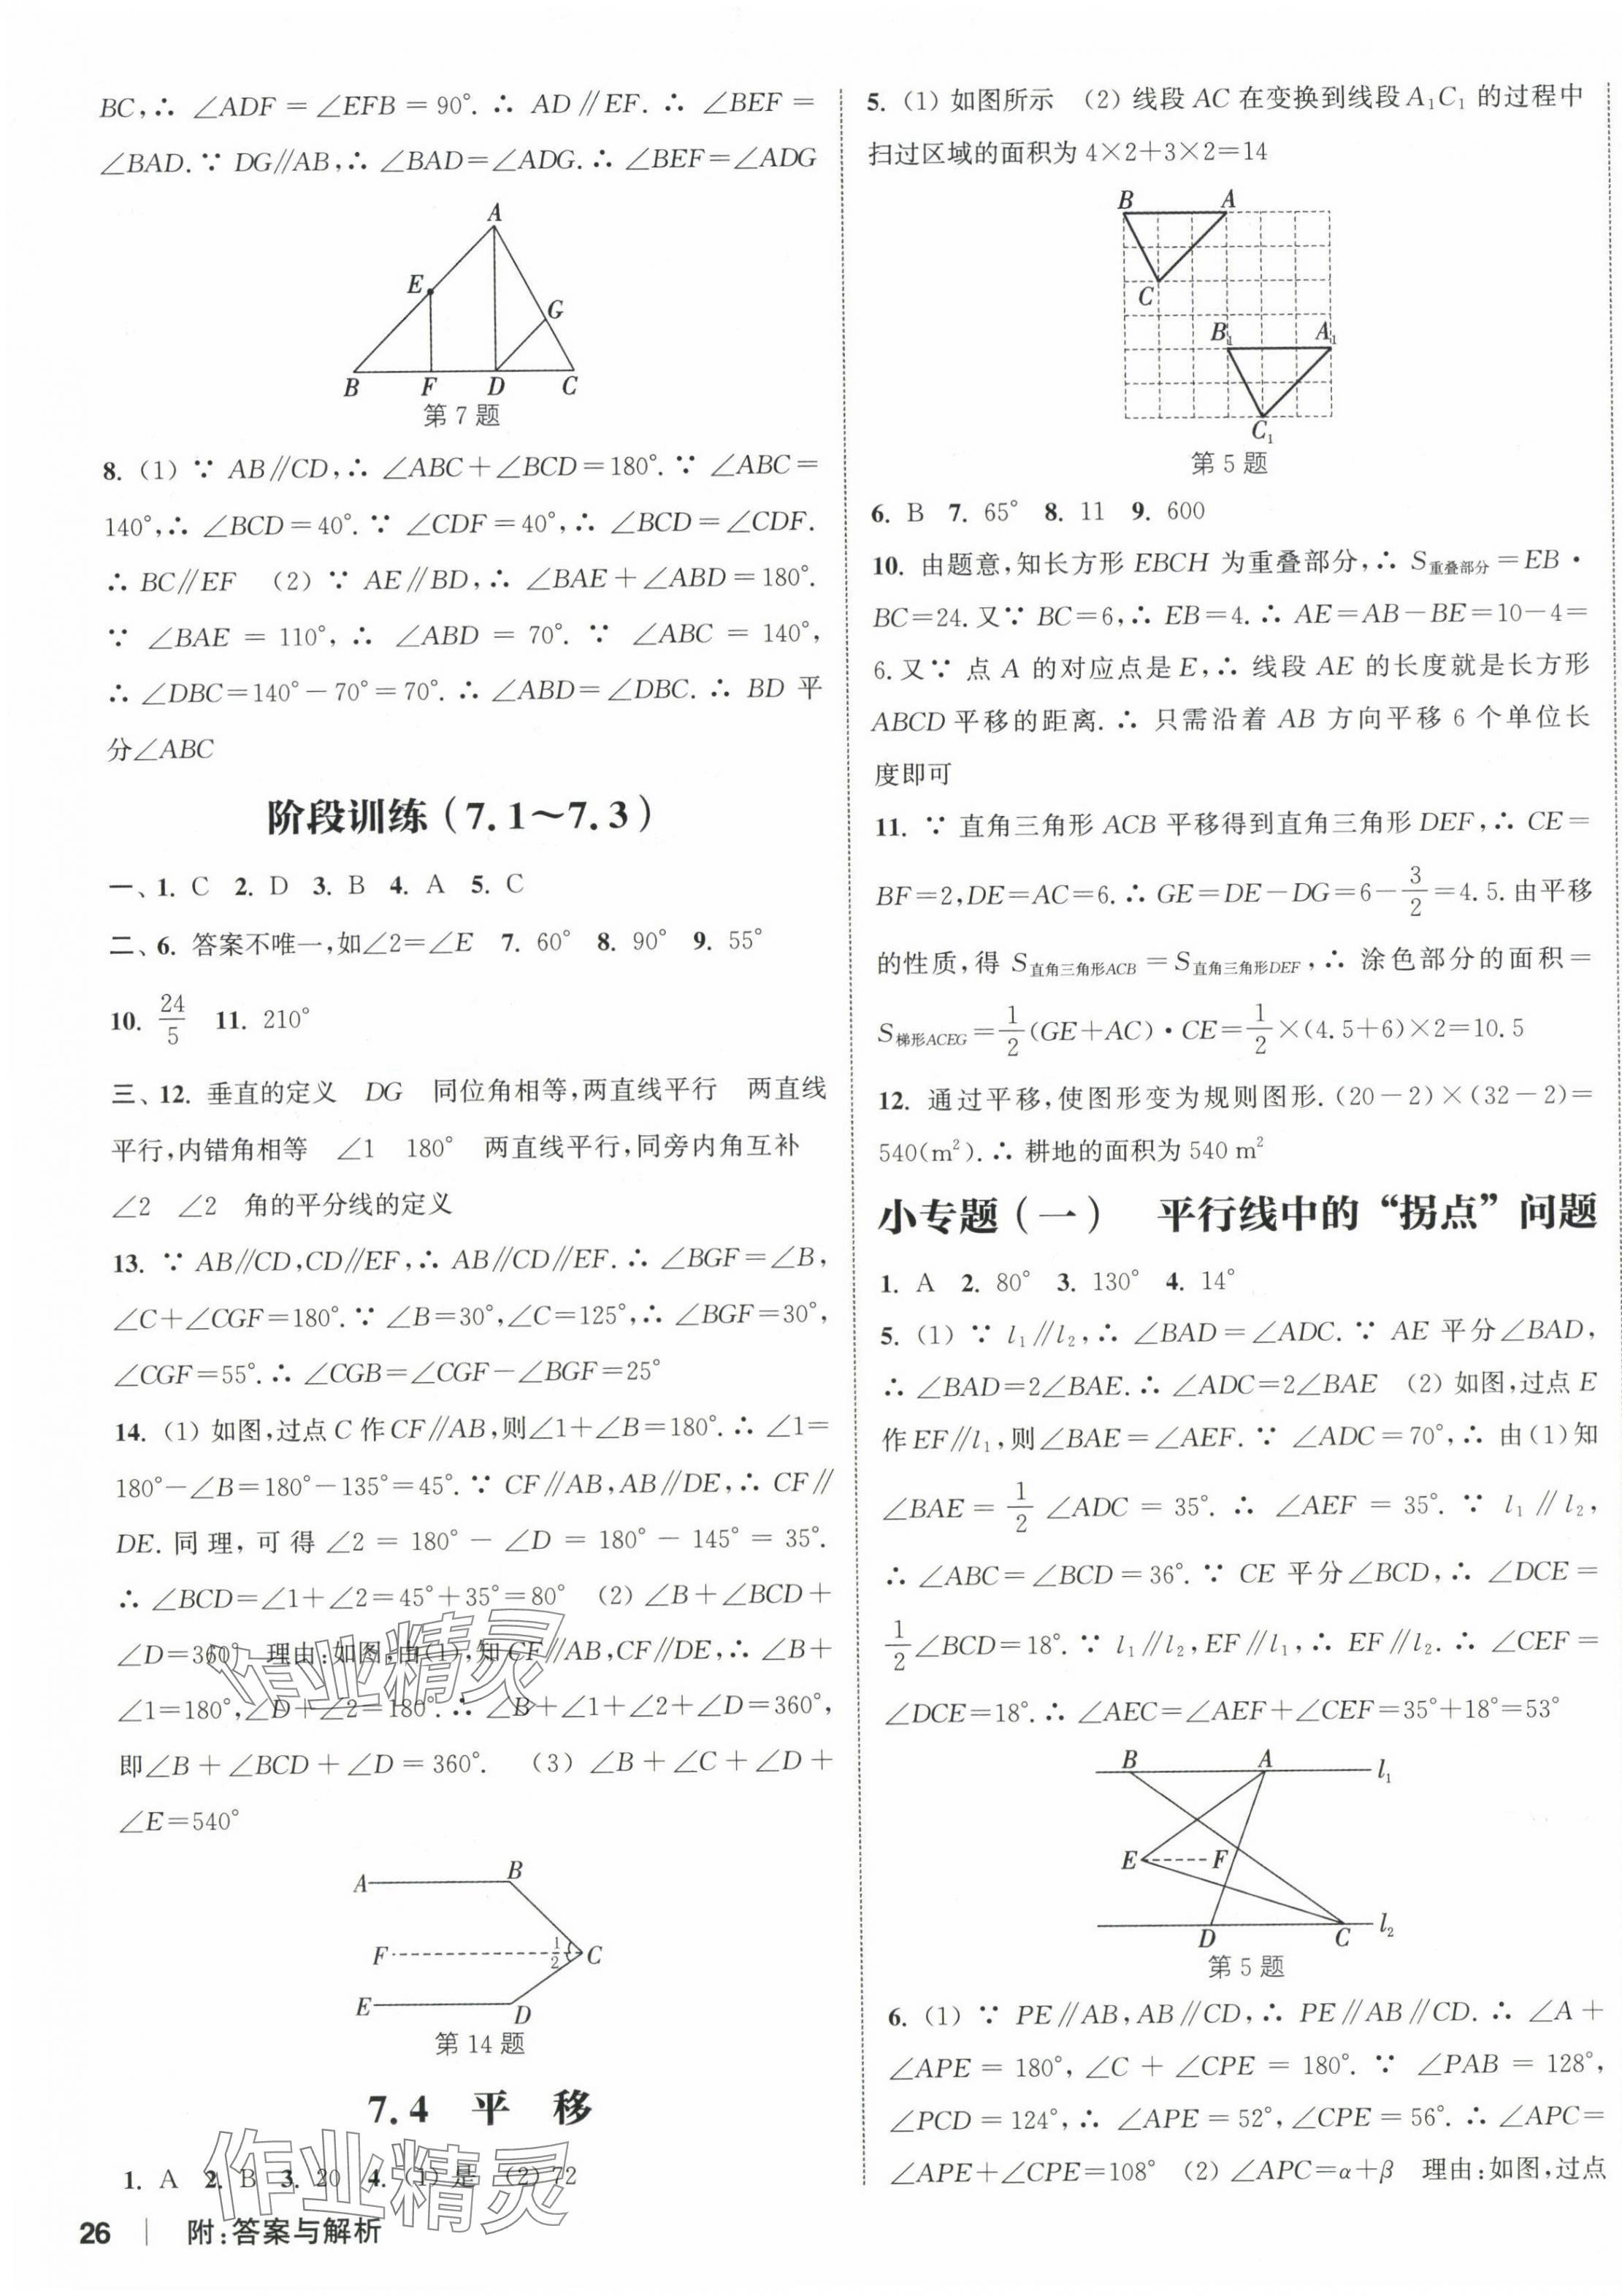 BC,∴ ∠ADF=∠EFB=90°.∴ AD∥EF.∴ ∠BEF=
∠BAD.∵ DG∥AB,∴ ∠BAD=∠ADG.∴ ∠BEF=∠ADG
A
E
G
B F D C
第 7 题
8. (1) ∵ AB∥CD,∴ ∠ABC+∠BCD=180°.∵ ∠ABC=
140°,∴ ∠BCD=40°.∵ ∠CDF=40°,∴ ∠BCD=∠CDF.
∴ BC∥EF (2) ∵ AE∥BD,∴ ∠BAE+∠ABD=180°.
∵ ∠BAE=110°,∴ ∠ABD=70°.∵ ∠ABC=140°,
∴ ∠DBC=140°-70°=70°.∴ ∠ABD=∠DBC.∴ BD 平
分∠ABC
阶段训练(7.1~7.3)
一、1. C 2. D 3. B 4. A 5. C
二、6. 答案不唯一,如∠2=∠E 7. 60° 8. 90° 9. 55°
10. 24/5 11. 210°
三、12. 垂直的定义 DG 同位角相等,两直线平行 两直线
平行,内错角相等 ∠1 180° 两直线平行,同旁内角互补
∠2 ∠2 角的平分线的定义
13. ∵ AB∥CD,CD∥EF,∴ AB∥CD∥EF.∴ ∠BGF=∠B,
∠C+∠CGF=180°.∵ ∠B=30°,∠C=125°,∴ ∠BGF=30°,
∠CGF=55°.∴ ∠CGB=∠CGF-∠BGF=25°
14. (1) 如图,过点 C 作 CF∥AB,则∠1+∠B=180°.∴ ∠1=
180°-∠B=180°-135°=45°.∵ CF∥AB,AB∥DE,∴ CF∥
DE.同理,可得∠2=180°-∠D=180°-145°=35°.
∴ ∠BCD=∠1+∠2=45°+35°=80° (2) ∠B+∠BCD+
∠D=360° 理由:如图,由(1),知 CF∥AB,CF∥DE,∴ ∠B+
∠1=180°,∠D+∠2=180°.∴ ∠B+∠1+∠2+∠D=360°,
即∠B+∠BCD+∠D=360°. (3) ∠B+∠C+∠D+
∠E=540°
A B
F 1 2 C
E D
第 14 题
7.4 平 移
1. A 2. B 3. 20 4. (1) 是 (2) 72
作业精灵
作业精灵
26 | 附:答案与解析
5. (1) 如图所示 (2) 线段 AC 在变换到线段 A₁C₁ 的过程中
扫过区域的面积为 4×2+3×2=14
B A
C
B₁ A₁
C₁
第 5 题
6. B 7. 65° 8. 11 9. 600
10. 由题意,知长方形 EBCH 为重叠部分,∴ S重叠部分=EB·
BC=24.又∵ BC=6,∴ EB=4.∴ AE=AB-BE=10-4=
6.又∵ 点 A 的对应点是 E,∴ 线段 AE 的长度就是长方形
ABCD 平移的距离.∴ 只需沿着 AB 方向平移 6 个单位长
度即可
11. ∵ 直角三角形 ACB 平移得到直角三角形 DEF,∴ CE=
BF=2,DE=AC=6.∴ GE=DE-DG=6-3/2=4.5.由平移
的性质,得 S直角三角形ACB=S直角三角形DEF,∴ 涂色部分的面积=
S梯形ACEG=1/2(GE+AC)·CE=1/2×(4.5+6)×2=10.5
12. 通过平移,使图形变为规则图形.(20-2)×(32-2)=
540(m²).∴ 耕地的面积为 540 m²
小专题(一) 平行线中的“拐点”问题
1. A 2. 80° 3. 130° 4. 14°
5. (1) ∵ l₁∥l₂,∴ ∠BAD=∠ADC.∵ AE 平分∠BAD,
∴ ∠BAD=2∠BAE.∴ ∠ADC=2∠BAE (2) 如图,过点 E
作 EF∥l₁,则∠BAE=∠AEF.∵ ∠ADC=70°,∴ 由(1)知
∠BAE=1/2∠ADC=35°.∴ ∠AEF=35°.∵ l₁∥l₂,
∴ ∠ABC=∠BCD=36°.∵ CE 平分∠BCD,∴ ∠DCE=
1/2∠BCD=18°.∵ l₁∥l₂,EF∥l₁,∴ EF∥l₂.∴ ∠CEF=
∠DCE=18°.∴ ∠AEC=∠AEF+∠CEF=35°+18°=53°
B A l₁
E F
D C l₂
第 5 题
6. (1) ∵ PE∥AB,AB∥CD,∴ PE∥AB∥CD.∴ ∠A+
∠APE=180°,∠C+∠CPE=180°.∵ ∠PAB=128°,
∠PCD=124°,∴ ∠APE=52°,∠CPE=56°.∴ ∠APC=
∠APE+∠CPE=108° (2) ∠APC=α+β 理由:如图,过点